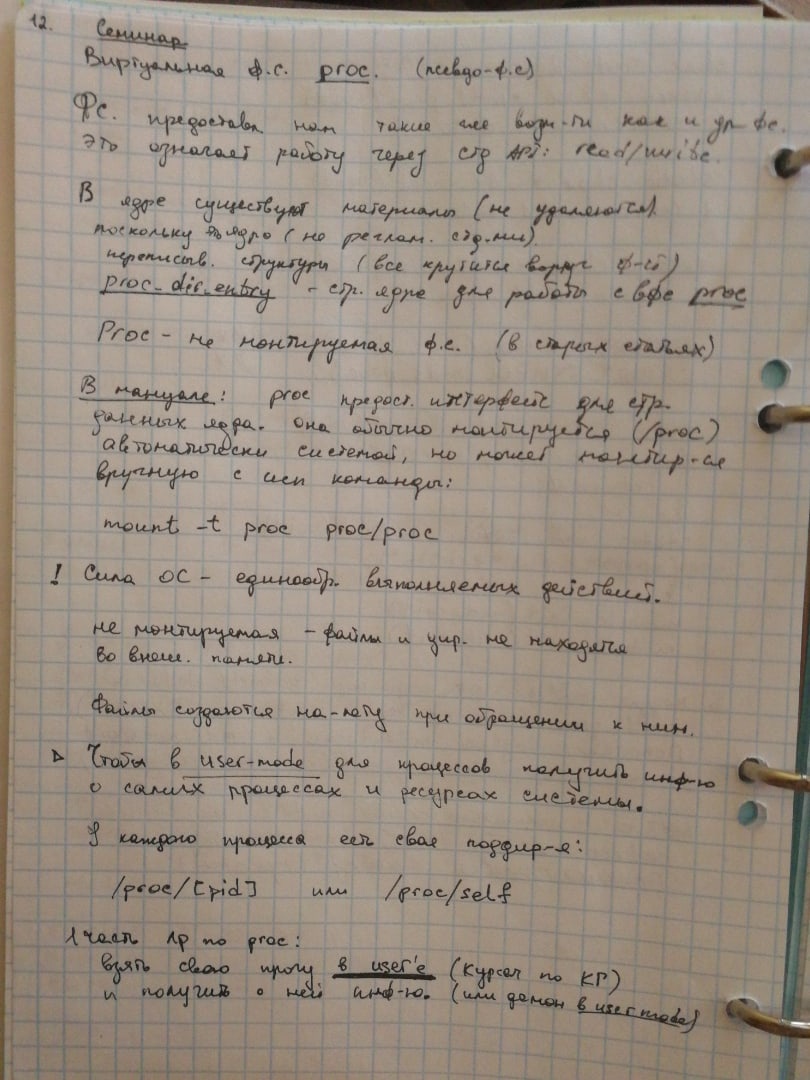 12.
Семинар
Виртуальная ф.с. proc. (псевдо-ф.с)
Фс. предоставл нам такие же возм-ти как и др фс.
Это означает работу через стд API: read/write.
В ядре существуют материалы (не удаляются)
поскольку ядро (не реглам. стд-ми)
переписыв. структуры (все крутится вокруг ф-й)
proc_dir_entry - стр. ядра для работы с вфс proc
Proc - не монтируемая ф.с. (в старых статьях)
В мануале: proc предост. интерфейс для стр.
данных ядра. она обычно монтируется (/proc)
автоматически системой, но может монтир-ся
вручную с исп команды:
mount -t proc proc/proc
! Сила ОС - единообр. выполняемых действий.
не монтируемая - файлы и дир. не находятся
во внеш. памяти.
Файлы создаются на-лету при обращении к ним.
Чтобы в user-mode для процессов получить инф-ю
о самих процессах и ресурсах системы.
У каждого процесса есть своя поддир-я:
/proc/[pid] или /proc/self
1 часть лр по proc:
взять свою прогу в user'е (Курсач по КГ)
и получить о ней инф-ю. (или демон в user mode)